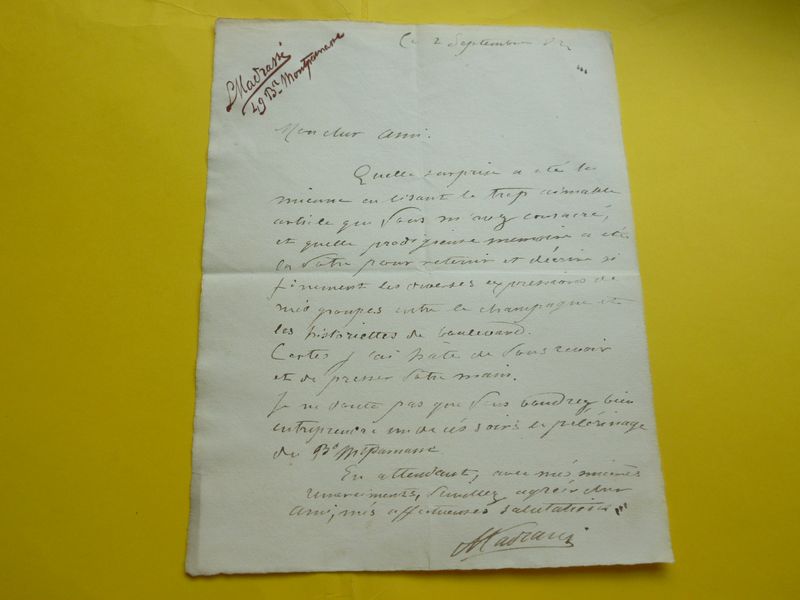 L Madrassi
49 Bd Montparnasse
Ce 2 Septembre
Mon cher Ami.
Quelle surprise a été la
mienne en lisant le trop aimable
article que Vous m'avez consacré,
et quelle prodigieuse memoire a été
la Votre pour retenir et décrire si
finement les diverses expressions de
mes groupes entre le champagne et
les historiettes de boulevard.
Certes j'ai hâte de Vous revoir
et de presser Votre main.
Je ne doute pas que Vous voudrez bien
entreprendre un de ces soirs le pélérinage
du Bd Mtparnasse
En attendant, avec mes
remerciments, Veuillez agréér cher
Ami, mes affectueuses salutations
LMadrassi